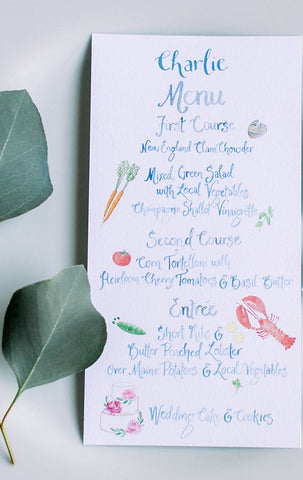 Charlie
Menu
First Course
New England Clam Chowder
Mixed Green Salad
with Local Vegetables
Champagne Shallot Vinaigrette
Second Course
Corn Tortelloni with
Heirloom Cherry Tomatoes & Basil Butter
Entrée
Short Ribs &
Butter Poached Lobster
Over Maine Potatoes & Local Vegetables
Wedding Cake & Cookies